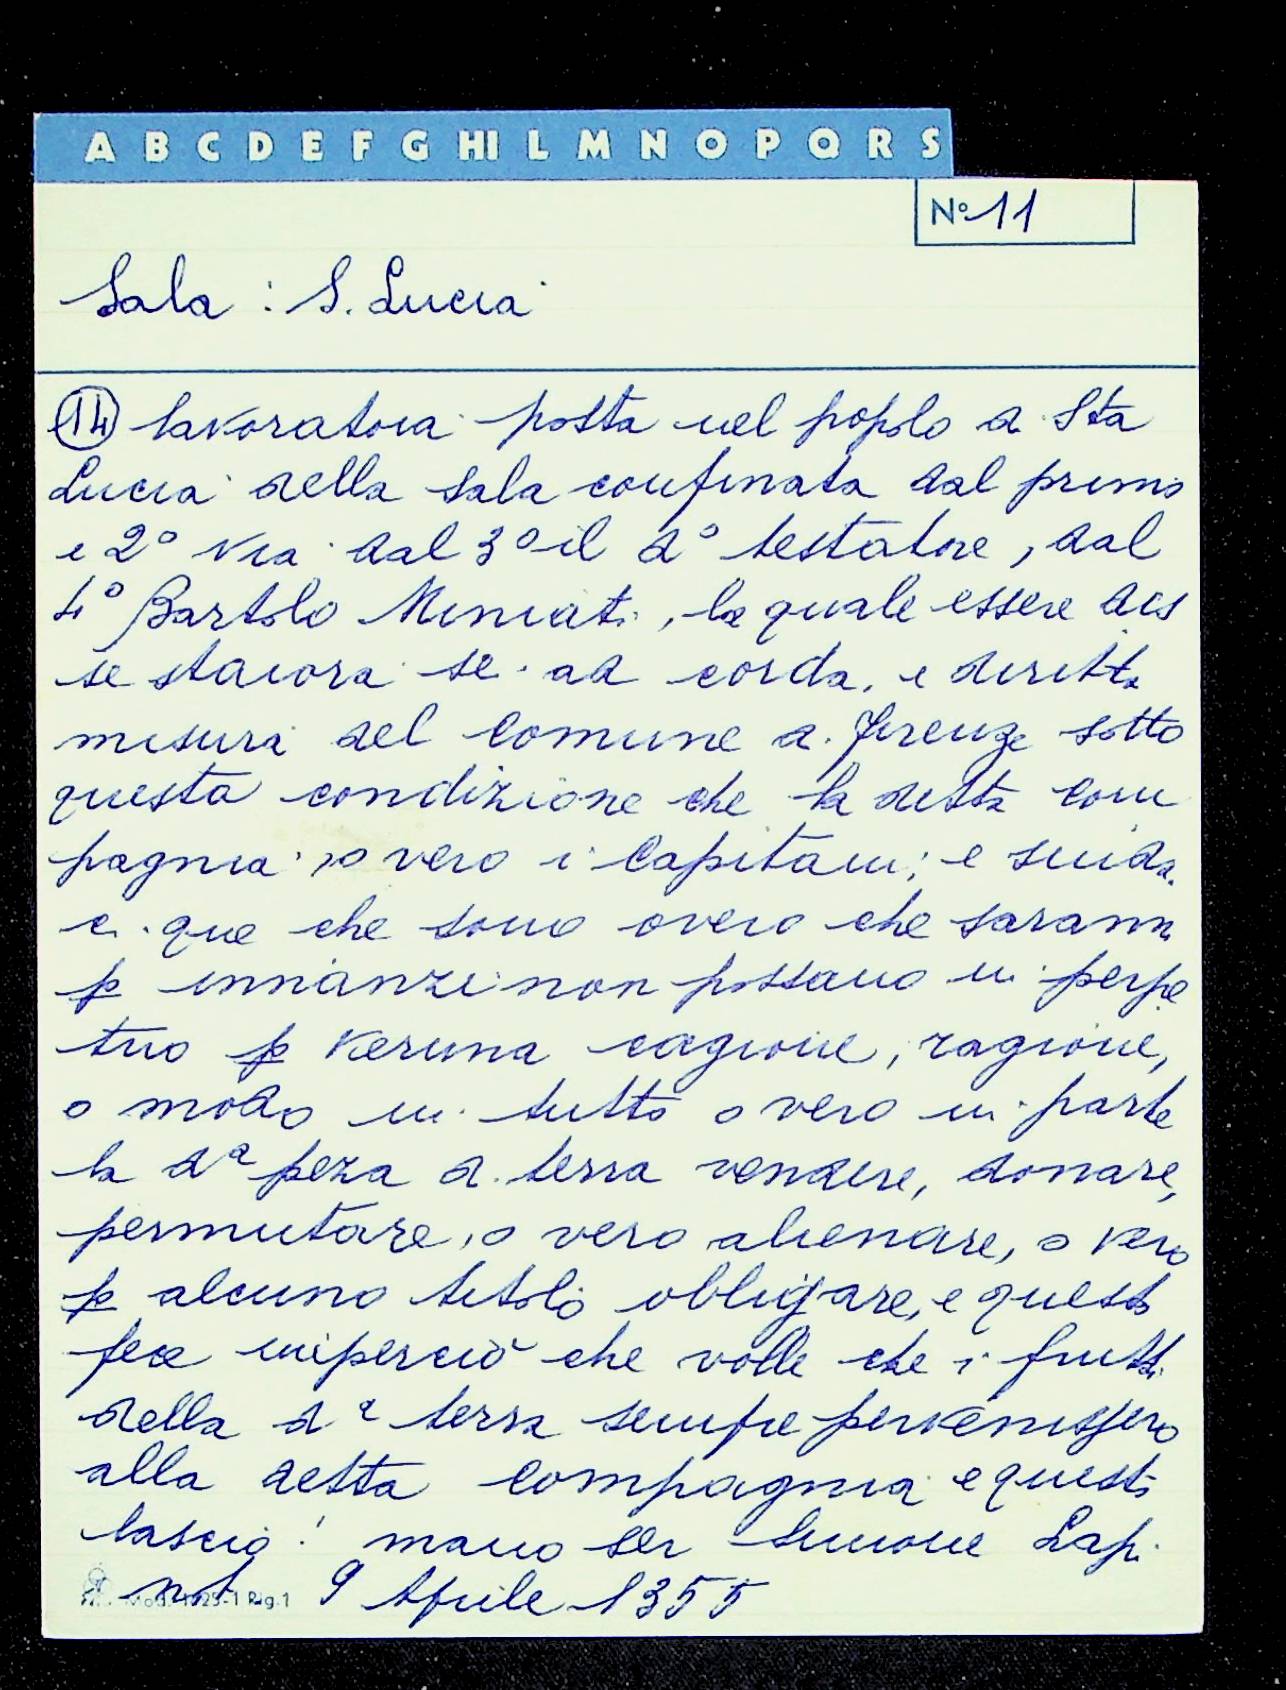 A B C D E F G HI L M N O P Q R S
N° 11
Sala : S. Lucia
(14) lavoratoia posta nel popolo di Sta
Lucia della Sala confinata dal primo
e 2° via dal 3° il d° testatore, dal
4° Bartolo Miniati, la quale essere dis
se staiora sei ad corda, e diritta
misura del Comune di Firenze sotto
questa condizione che la detta Com
pagnia, o vero i Capitani, e sinda
ci que che sono overo che sarann
p innanzi non possano in perpe
tuo p veruna cagione, ragione,
o modo in tutto o vero in parte
la dª peza di terra vendere, donare,
permutare, o vero alienare, o vero
p alcuno titolo obligare, e questo
fece imperciò che volle che i frutti
della dª terra sempre pervenissero
alla detta Compagnia e questo
lasciò! mano ser Simone Lapi
not 9 Aprile 1355
Rig.1